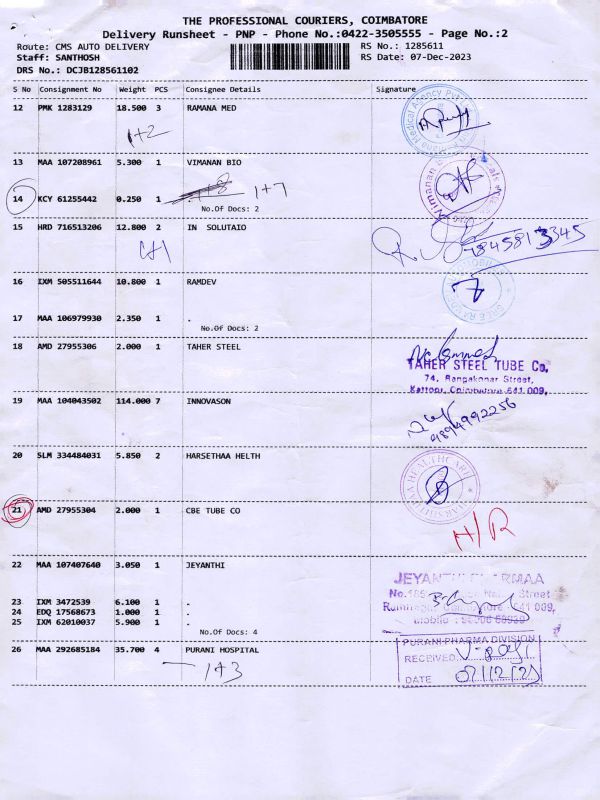 THE PROFESSIONAL COURIERS, COIMBATORE
Delivery Runsheet - PNP - Phone No.:0422-3505555 - Page No.:2
Route: CMS AUTO DELIVERY RS No.: 1285611
Staff: SANTHOSH RS Date: 07-Dec-2023
DRS No.: DCJB128561102
S No Consignment No Weight PCS Consignee Details Signature
12 PMK 1283129 18.500 3 RAMANA MED
1+2
13 MAA 107208961 5.300 1 VIMANAN BIO
14 KCY 61255442 0.250 1 1+7
No.Of Docs: 2
15 HRD 716513206 12.800 2 IN SOLUTAIO
1+1
16 IXM 505511644 10.800 1 RAMDEV
17 MAA 106979930 2.350 1 .
No.Of Docs: 2
18 AMD 27955306 2.000 1 TAHER STEEL
TAHER STEEL TUBE Co.
74, Rangakonar Street,
Kattoor, Coimbatore 641 009.
19 MAA 104043502 114.000 7 INNOVASON
9894992256
20 SLM 334484031 5.850 2 HARSETHAA HELTH
21 AMD 27955304 2.000 1 CBE TUBE CO
H/R
22 MAA 107407640 3.050 1 JEYANTHI
JEYANTHI PHARMAA
23 IXM 3472539 6.100 1 .
24 EDQ 17568673 1.000 1 .
25 IXM 62010037 5.900 1 .
No.Of Docs: 4
26 MAA 292685184 35.700 4 PURANI HOSPITAL
1+3
PURANI PHARMA DIVISION
RECEIVED
DATE 07/12/23